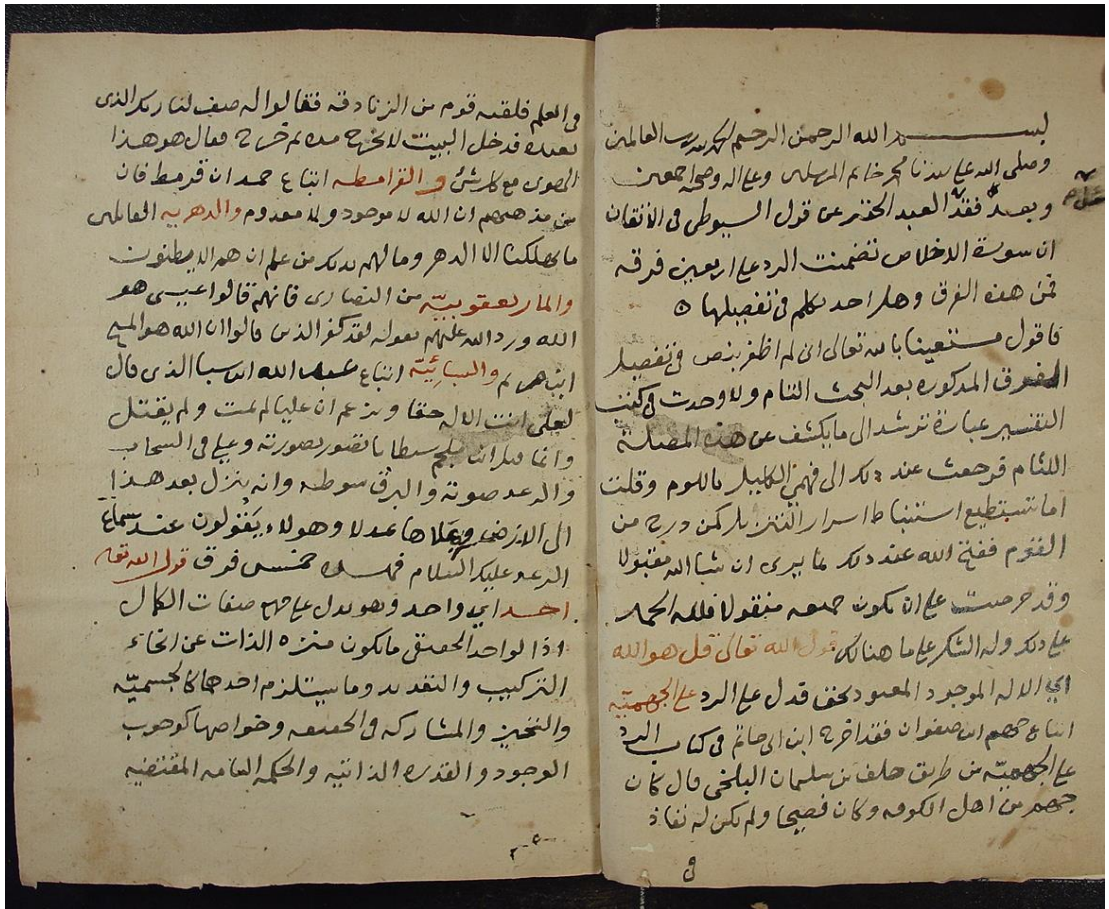 بسم الله الرحمن الرحيم الحمد لله رب العالمين
وصلى الله على سيدنا محمد خاتم المرسلين وعلى اله وصحبه اجمعين
وبعد فقد العبد الحقير عن قول السيوطى فى الاتقان
ان سورة الاخلاص تضمنت الرد على اربعين فرقه
فمن هذه الفرق وهل احد تكلم فى تفصيلها ه
فاقول مستعينا بالله تعالى انى لم اظفر بنص فى تفصيل
الفرق المذكوره بعد البحث التام ولا وجدت فى كتب
التفسير عبارة ترشد الى ما يكشف عن هذه المعضلة
اللثام فرجعت عند ذلك الى فهمي الكليل باللوم وقلت
اما تستطيع استنباط اسرار التنزيل كمن درج من
القوم ففتح الله عند ذلك بما يرى ان شا الله مقبولا
وقد حرصت على ان يكون جميعه منقولا فلله الحمد
على ذلك وله الشكر على ما هنالك قول الله تعالى قل هو الله
اي الاله الموجود المعبود بحق فدل على الرد على الجهميّة
اتباع جهم ابن صفوان فقد اخرج ابن ابى حاتم فى كتاب الرد
على الجهميّه من طريق خلف بن سليمان البلخى قال كان
جهم من اهل الكوفه وكان فصيحا ولم يكن له نفاذ
فى
فى العلم فلقيه قوم من الزنادقه فقالوا له صف لنا ربك الذى
تعبده فدخل البيت لا يخرج مده ثم خرج فقال هو هذا
الهوى مع كل شئ والقرامطه اتباع حمدان قرمط فان
من مذهبهم ان الله لا موجود ولا معدوم والدهريه القائلين
ما يهلكنا الا الدهر وما لهم بذلك من علم ان هم الا يظنون
والمار يعقوبيّه من النصارى فانهم قالوا عيسى هو
الله ورد الله عليهم بقوله لقد كفر الذين قالوا ان الله هو المسيح
ابن مريم والسبائيّة اتباع عبد الله ابن سبا الذى قال
لعلى انت الاله حقا وزعم ان عليا لم يمت ولم يقتل
وانما قتل ابن ملجم شيطانا تصور بصورته وعلي فى السحاب
والرعد صوته والبرق سوطه وانه ينزل بعد هذا
الى الارض ويملاها عدلا وهولاء يقولون عند سماع
الرعد عليك السلام فهذه خمس فرق قول الله تعه
احد اي واحد وهو يدل على جميع صفات الكمال
اذ الواحد الحقيقى ما يكون منزه الذات عن انحاء
التركيب والتعدد وما يستلزم احدهما كالجسميّه
والتحيز والمشاركه فى الحقيقه وخواصها كوجوب
الوجود والقدره الذاتيه والحكمه التامه المقتضيه